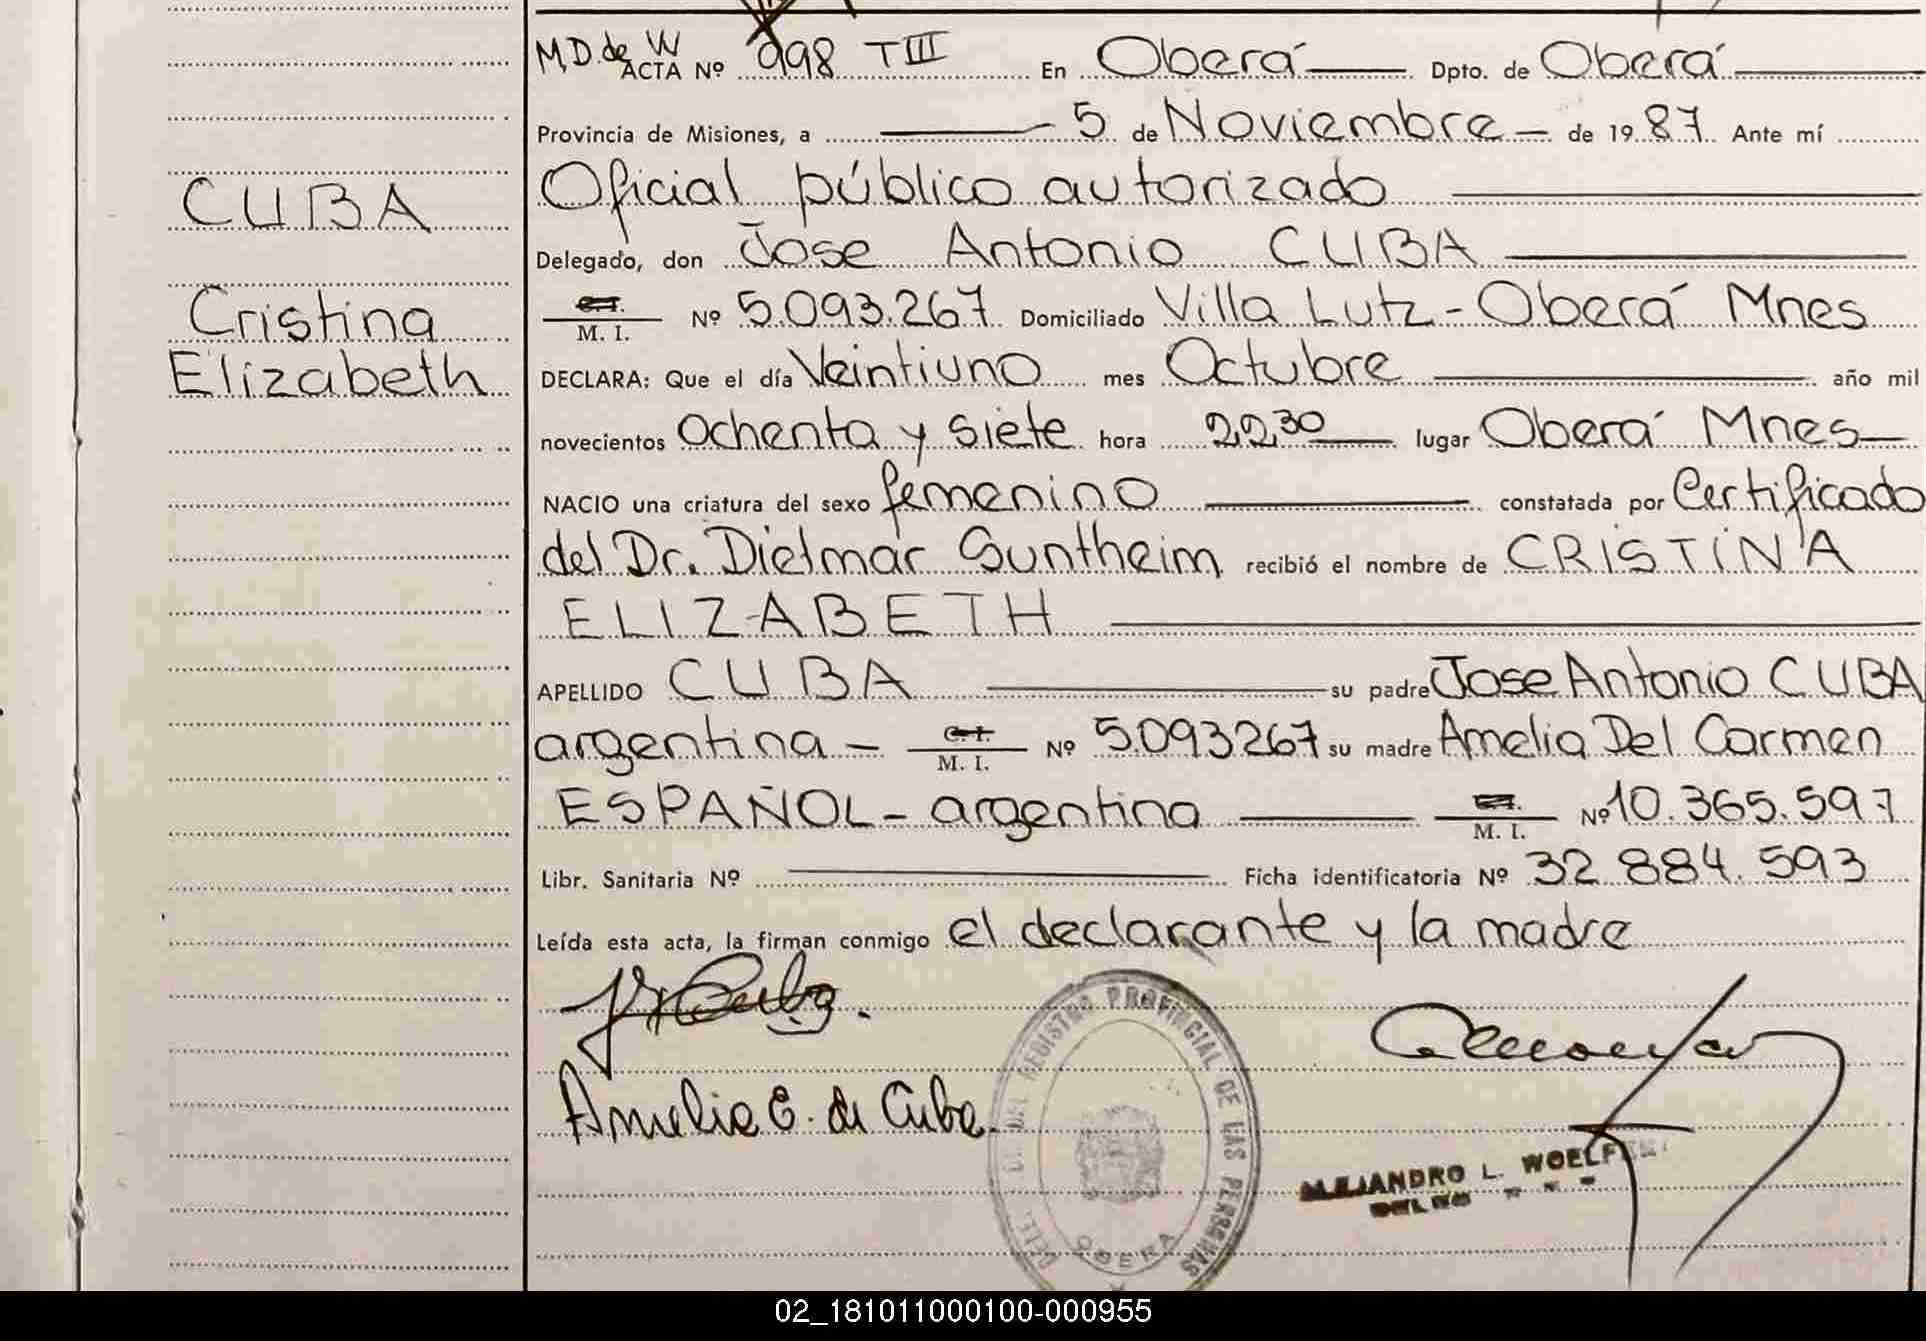 M.D. de W
ACTA Nº 998 TIII En Oberá Dpto. de Oberá
Provincia de Misiones, a 5 de Noviembre de 1987 Ante mí
Oficial público autorizado
Delegado, don Jose Antonio CUBA
C.I. M. I. Nº 5.093.267 Domiciliado Villa Lutz - Oberá Mnes
DECLARA: Que el día Veintiuno mes Octubre año mil
novecientos Ochenta y siete hora 22,30 lugar Oberá Mnes
NACIO una criatura del sexo femenino constatada por Certificado
del Dr. Dietmar Suntheim recibió el nombre de CRISTINA
ELIZABETH
APELLIDO CUBA su padre Jose Antonio CUBA
argentina - C.I. M. I. Nº 5.093267 su madre Amelia Del Carmen
ESPAÑOL - argentina M. I. Nº 10.365.597
Libr. Sanitaria Nº Ficha identificatoria Nº 32.884.593
Leída esta acta, la firman conmigo el declarante y la madre
CUBA
Cristina
Elizabeth
Cuba.
Amelia E. de Cuba.
DEL REGISTRO PROVINCIAL DE LAS PERSONAS
OBERA
ALEJANDRO L.
02_181011000100-000955